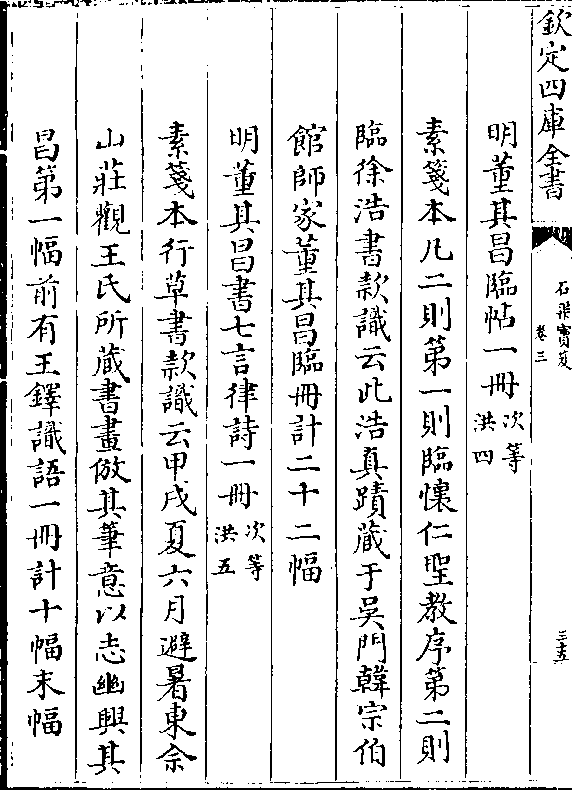 欽定四庫全書
石渠寶笈
卷三
三十五
明董其昌臨帖一冊次等洪四
素箋本凡二則第一則臨懷仁聖教序第二則
臨徐浩書款識云此浩真蹟藏于吳門韓宗伯
館師家董其昌臨冊計二十二幅
明董其昌書七言律詩一冊次等洪五
素箋本行草書款識云甲戌夏六月避暑東佘
山莊觀王氏所藏書畫倣其筆意以志幽興其
昌第一幅前有王鐸識語一冊計十幅末幅